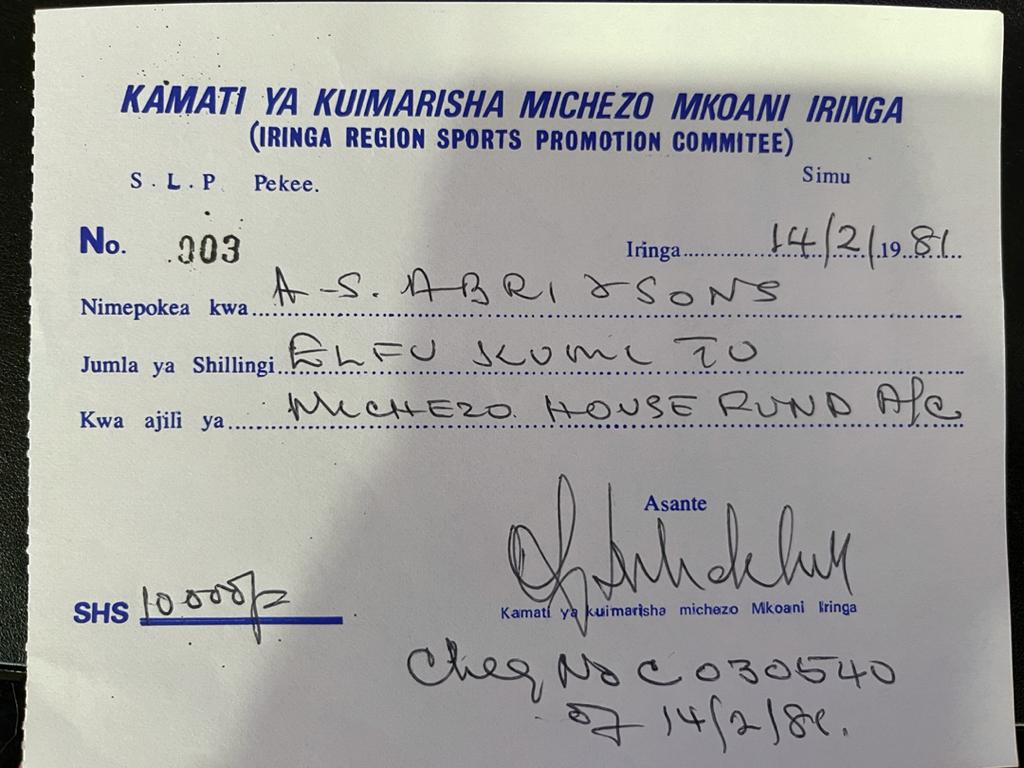 KAMATI YA KUIMARISHA MICHEZO MKOANI IRINGA
(IRINGA REGION SPORTS PROMOTION COMMITEE)
S.L.P Pekee. Simu
No. 003 Iringa 14/2/1981
Nimepokea kwa A.S. ABRI & SONS
Jumla ya Shillingi ELFU KUMI TU
Kwa ajili ya MICHEZO HOUSE FUND A/C
Asante
SHS 10000/=
Kamati ya kuimarisha michezo Mkoani Iringa
Cheq No C 030540
of 14/2/81.